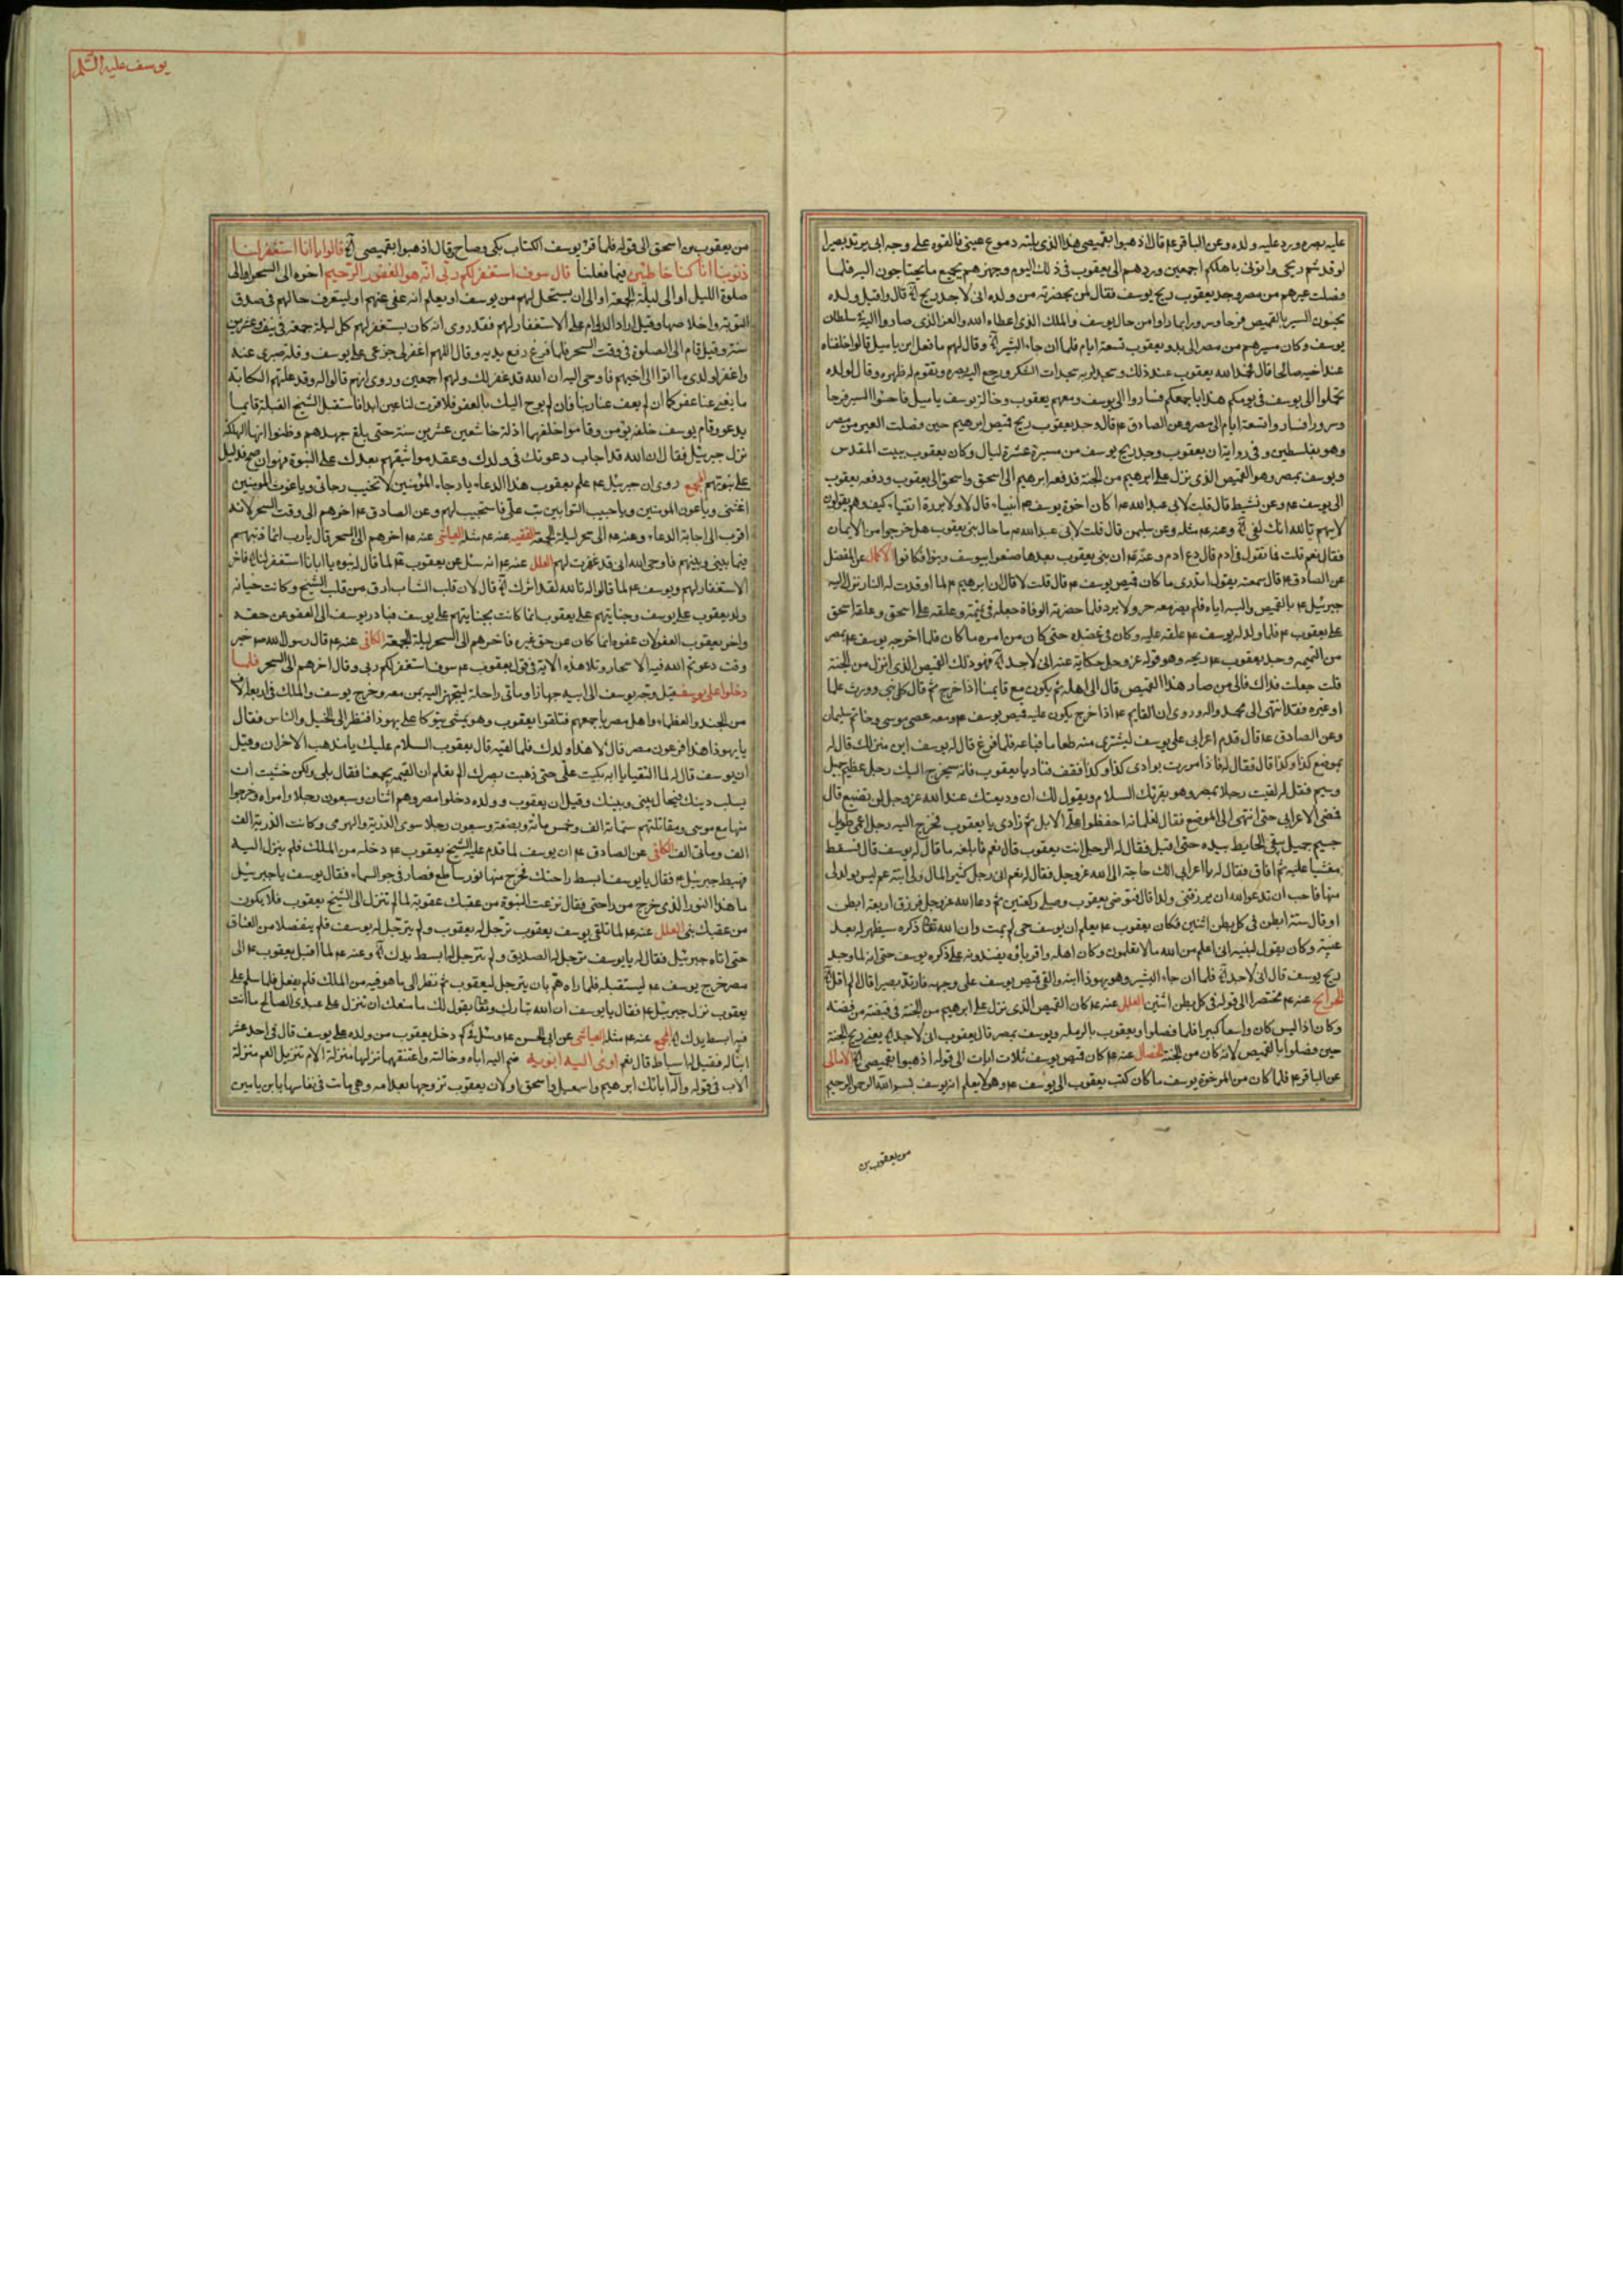 عليه بصره ورد عليه ولده وعن الباقر عم قال اذهبوا بقميصى هذا الذى بلته دموع عينى فالقوه على وجه ابى يرتد بصيرا
لو قد شم ريحى واتونى باهلكم اجمعين وردهم الى يعقوب فى ذلك اليوم وجهزهم بجميع ما يحتاجون اليه فلما
فصلت عيرهم من مصر وجد يعقوب ريح يوسف فقال لمن بحضرته من ولده انى لاجد ريح قال واقبل ولده
يحثون السير بالقميص فرحا وسرورا بما راوا من حال يوسف والملك الذى اعطاه الله والعز الذى صاروا اليه سلطان
يوسف وكان مسيرهم من مصر الى بدو يعقوب تسعة ايام فلما ان جاء البشير وقال لهم ما فعل ابن ياميل قالوا خلفناه
عند اخيه صالحا قال فحمد الله يعقوب عند ذلك وسجد لربه سجدات الشكر ورجع اليه بصره وتقوم له ظهره وقال لولده
تحملوا الى يوسف فى يومكم هذا باجمعكم فساروا الى يوسف ومعهم يعقوب وخالة يوسف ياميل فاحثوا السير فرحا
وسرورا فساروا تسعة ايام الى مصر وعن الصادق عم قال وجد يعقوب ريح قميص ابرهيم حين فصلت العير من مصر
وهو بفلسطين وفى رواية ان يعقوب وجد ريح يوسف من مسيرة عشرة ليال وكان يعقوب ببيت المقدس
ويوسف بمصر وهو القميص الذى نزل على ابرهيم من الجنة فدفعه ابرهيم الى اسحق واسحق الى يعقوب ودفعه يعقوب
الى يوسف عم وعن نشيط قال قلت لابى عبد الله عم اكان اخوة يوسف عم انبياء قال لا ولا بررة اتقياء كيف وهم يقولون
لابيهم تالله انك لفى وعنه عم مثله وعن سليمن قال قلت لابى عبد الله عم ما حال بنى يعقوب هل خرجوا من الايمان
فقال نعم قلت فما تقول فى ادم قال دع ادم وعنه عم ان بنى يعقوب بعدما صنعوا بيوسف اذنبوا فكانوا الاكمال عن المفضل
عن الصادق عم قال سمعته يقول اتدرى ما كان قميص يوسف عم قال قلت لا قال ان ابرهيم عم لما اوقدت له النار نزل اليه
جبرئيل عم بالقميص والبسه اياه فلم يضره معه حر ولا برد فلما حضرته الوفاة جعله فى تميمة وعلقه على اسحق وعلقه اسحق
على يعقوب عم فلما ولد له يوسف عم علقه عليه وكان فى عضده حتى كان من امره ما كان فلما اخرجه يوسف عم بمصر
من التميمه وجد يعقوب عم ريحه وهو قوله عز وجل حكاية عنه انى لاجد فهو ذلك القميص الذى انزل من الجنة
قلت جعلت فداك فالى من صار هذا القميص قال الى اهله ثم يكون مع قايمنا اذا خرج ثم قال كل نبى وورث علما
او غيره فقد انتهى الى محمد واله وروى ان القايم عم اذا خرج يكون عليه قميص يوسف عم ومعه عصى موسى وخاتم سليمان
وعن الصادق عم قال قدم اعرابى على يوسف ليشترى منه طعاما فباعه فلما فرغ قال له يوسف اين منزلك قال له
بموضع كذا وكذا قال فقال له فاذا مررت بوادى كذا وكذا فقف فناد يا يعقوب فانه سيخرج اليك رجل عظيم جميل
وسيم فقل له لقيت رجلا بمصر وهو يقرئك السلام ويقول لك ان وديعتك عند الله عز وجل لن تضيع قال
فمضى الاعرابى حتى انتهى الى الموضع فقال لغلمانه احفظوا على الابل ثم نادى يا يعقوب فخرج اليه رجل اعمى طويل
جسيم جميل يتقى الحايط بيده حتى اقبل فقال له الرجل انت يعقوب قال نعم فابلغه ما قال له يوسف قال فسقط
مغشيا عليه ثم افاق فقال له يا اعرابى الك حاجة الى الله عز وجل فقال له نعم انى رجل كثير المال ولى ابنة عم ليس يولد لى
منها فاحب ان تدعو الله ان يرزقنى ولدا قال فتوضى يعقوب وصلى ركعتين ثم دعا الله عز وجل فرزق اربعة ابطن
او قال ستة ابطن فى كل بطن اثنين فكان يعقوب عم يعلم ان يوسف حى لم يمت وان الله تعالى ذكره سيظهر له بعد
غيبته وكان يقول لبنيه انى اعلم من الله ما لا تعلمون وكان اهله واقرباؤه يفندونه على ذكره يوسف حتى انه لما وجد
ريح يوسف قال انى لاجد فلما ان جاء البشير وهو يهوذا ابنه والقى قميص يوسف على وجهه فارتد بصيرا قال الم اقل
الخرايج عنه عم مختصرا الى قوله فى كل بطن اثنين العلل عنه عم كان القميص الذى نزل على ابرهيم من الجنة فى قصبة من فضة
وكان اذا لبس كان واسعا كبيرا فلما فصلوا ويعقوب بالرملة ويوسف بمصر قال يعقوب انى لاجد يعنى ريح الجنة
حين فصلوا بالقميص لانه كان من الجنة الخصال عنه عم كان قميص يوسف ثلاث ايات الى قوله اذهبوا بقميصى الامالى
عن الباقر عم فلما كان من امر اخوة يوسف ما كان كتب يعقوب الى يوسف عم وهو لا يعلم انه يوسف بسم الله الرحمن الرحيم
من يعقوب بن
يوسف عليه السلم
من يعقوب بن اسحق الى قوله فلما قرء يوسف الكتاب بكى وصاح وقال اذهبوا بقميصى قالوا يا ابانا استغفر لنا
ذنوبنا انا كنا خاطئين فيما فعلنا قال سوف استغفر لكم ربى انه هو الغفور الرحيم اخره الى السحر او الى
صلوة الليل او الى ليلة الجمعة او الى ان يستحل لهم من يوسف او يعلم انه عفى عنهم او ليتعرف حالهم فى صدق
التوبة واخلاصها وقيل اراد الدوام على الاستغفار لهم فقد روى انه كان يستغفر لهم كل ليلة جمعة فى نيف وعشرين
سنة وقيل قام الى الصلوة فى وقت السحر فلما فرغ رفع يديه وقال اللهم اغفر لى جزعى على يوسف وقلة صبرى عنه
واغفر لولدى ما اتوا الى اخيهم فاوحى اليه ان الله قد غفر لك ولهم اجمعين وروى انهم قالوا له وقد علتهم الكابة
ما يغنى عنا عفوكما ان لم يعف عنا ربنا فان لم يوح اليك بالعفو فلا قرت لنا عين ابدا فاستقبل الشيخ القبلة قايما
يدعو وقام يوسف خلفه يؤمن وقاموا خلفهما اذلة خاشعين عشرين سنة حتى بلغ جهدهم وظنوا انها الهلكة
نزل جبرئيل فقال ان الله قد اجاب دعوتك فى ولدك وعقد مواثيقهم بعدك على النبوة وهو ان صح فدليل
على نبوتهم المجمع روى ان جبرئيل عم علم يعقوب هذا الدعاء يا رجاء المؤمنين لا تخيب رجائى ويا غوث المومنين
اغثنى ويا عون المومنين ويا حبيب التوابين تب على فاستجيب لهم وعن الصادق عم اخرهم الى وقت السحر لانه
اقرب الى اجابة الدعاء وعنه عم الى سحر ليلة الجمعة الفقيه عنه عم مثله العياشى عنه عم اخرهم الى السحر قال يا رب انما ذنبهم
فيما بينى وبينهم فاوحى الله انى قد غفرت لهم العلل عنه عم انه سئل عن يعقوب عم لما قال له بنوه يا ابانا استغفر لنا فاخر
الاستغفار لهم ويوسف عم لما قالوا له تالله لقد اثرك قال لان قلب الشاب ارق من قلب الشيخ وكانت جناية
ولد يعقوب على يوسف وجنايتهم على يعقوب انما كانت بجنايتهم على يوسف فبادر يوسف الى العفو عن حقه
واخر يعقوب العفو لان عفوه انما كان عن حق غيره فاخرهم الى السحر ليلة الجمعة الكافى عنه عم قال رسول الله ص خير
وقت دعوتم الله فيه الاسحار وتلا هذه الاية فى قول يعقوب عم سوف استغفر لكم ربى وقال اخرهم الى السحر فلما
دخلوا على يوسف قيل وجه يوسف الى ابيه جهازا ومأتى راحلة ليتجهز اليه بمن معه وخرج يوسف والملك فى اربعة الاف
من الجند والعظماء واهل مصر باجمعهم فتلقوا يعقوب وهو يمشى يتوكا على يهوذا فنظر الى الخيل والناس فقال
يا يهوذا هذا فرعون مصر قال لا هذا ولدك فلما لقيه قال يعقوب السلام عليك يا مذهب الاحزان وقيل
ان يوسف قال له لما التقيا يا ابه بكيت على حتى ذهبت بصرك الم تعلم ان القيمة يجمعنا فقال بلى ولكن خشيت ان
يسلب دينك فيحال بينى وبينك وقيل ان يعقوب وولده دخلوا مصر وهم اثنان وسبعون رجلا وامراة وخرجوا
منها مع موسى ومقاتلتهم ستماة الف وخمس مائة وبضعة وسبعون رجلا سوى الذرية والهرمى وكانت الذرية الف
الف ومأتى الف الكافى عن الصادق عم ان يوسف لما قدم عليه الشيخ يعقوب عم دخله عز الملك فلم ينزل اليه
فهبط جبرئيل عم فقال يا يوسف ابسط راحتك فخرج منها نور ساطع فصار فى جو السماء فقال يوسف يا جبرئيل
ما هذا النور الذى خرج من راحتى فقال نزعت النبوة من عقبك عقوبة لما لم تنزل الى الشيخ يعقوب فلا يكون
من عقبك نبى العلل عنه عم لما تلقى يوسف يعقوب ترجل له يعقوب ولم يترجل له يوسف فلم ينفصلا من العناق
حتى اتاه جبرئيل فقال له يا يوسف ترجل لك الصديق ولم تترجل له ابسط يدك وعنه عم لما اقبل يعقوب عم الى
مصر خرج يوسف عم ليستقبله فلما راه هم بان يترجل ليعقوب ثم نظر الى ما هو فيه من الملك فلم يفعل فلما سلم على
يعقوب نزل جبرئيل عم فقال يا يوسف ان الله تبارك وتعالى يقول لك ما منعك ان تنزل على عبدى الصالح ما انت
فيه ابسط يدك المجمع عنه عم مثله العياشى عن ابى الحسن عم وسئل كم دخل يعقوب من ولده على يوسف قال فى احد عشر
ابنا له فقيل له اسباط قال نعم اوى اليه ابويه ضم اليه اباه وخالته واعتنقهما نزلها منزلة الام تنزيل العم منزلة
الاب فى قوله واله ابائك ابرهيم واسمعيل واسحق او لان يعقوب تزوجها بعد امه وهى ماتت فى نفاسها بابن يامين